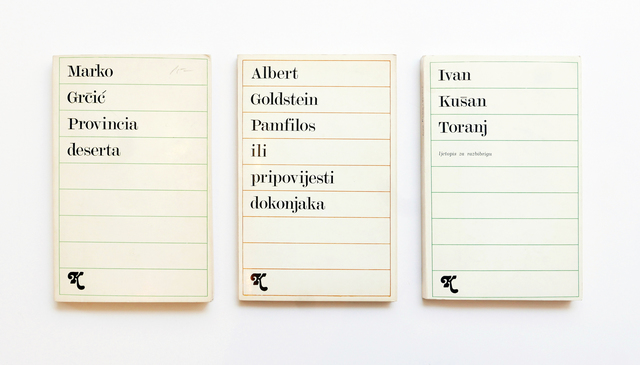 Marko
Grčić
Provincia
deserta
K
Albert
Goldstein
Pamfilos
ili
pripovijesti
dokonjaka
K
Ivan
Kušan
Toranj
ljetopis za razbibrigu
K